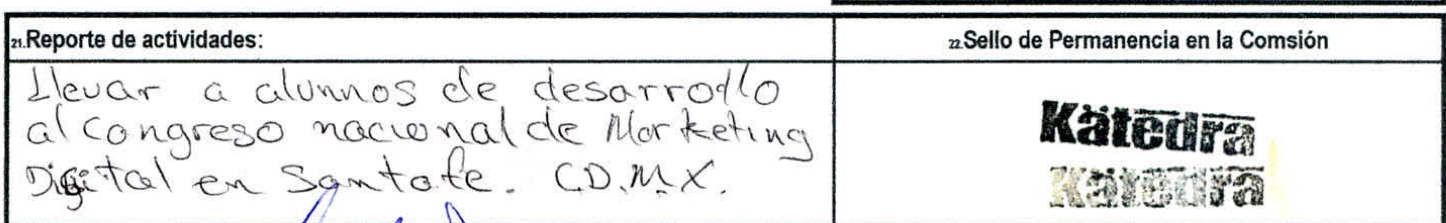 21.Reporte de actividades:
22.Sello de Permanencia en la Comsión
Llevar a alumnos de desarrollo
al Congreso nacional de Marketing
Digital en Santafe. CD.MX.
Kátedra
Kátedra